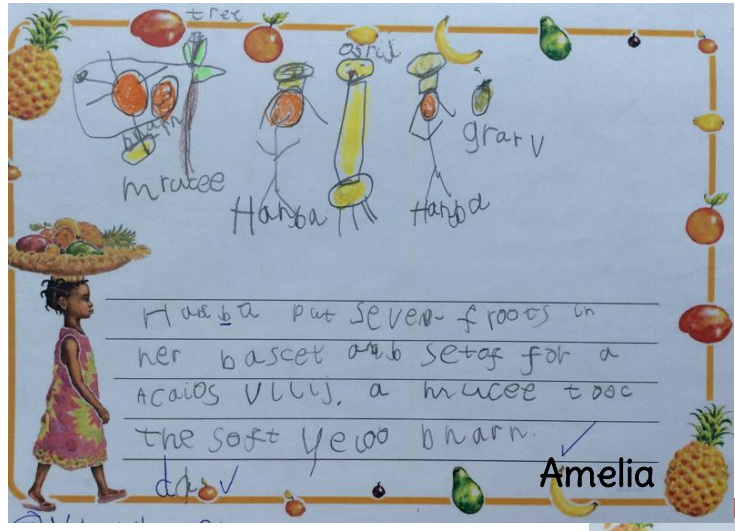 tree
osrij
bnarn
mrucee
Handa
Handa
grarv
Handa put seven froots in
her bascet and setof for a
Acaios Vllij. a mucee tooc
the soft yewoo bnarn.
d
Amelia